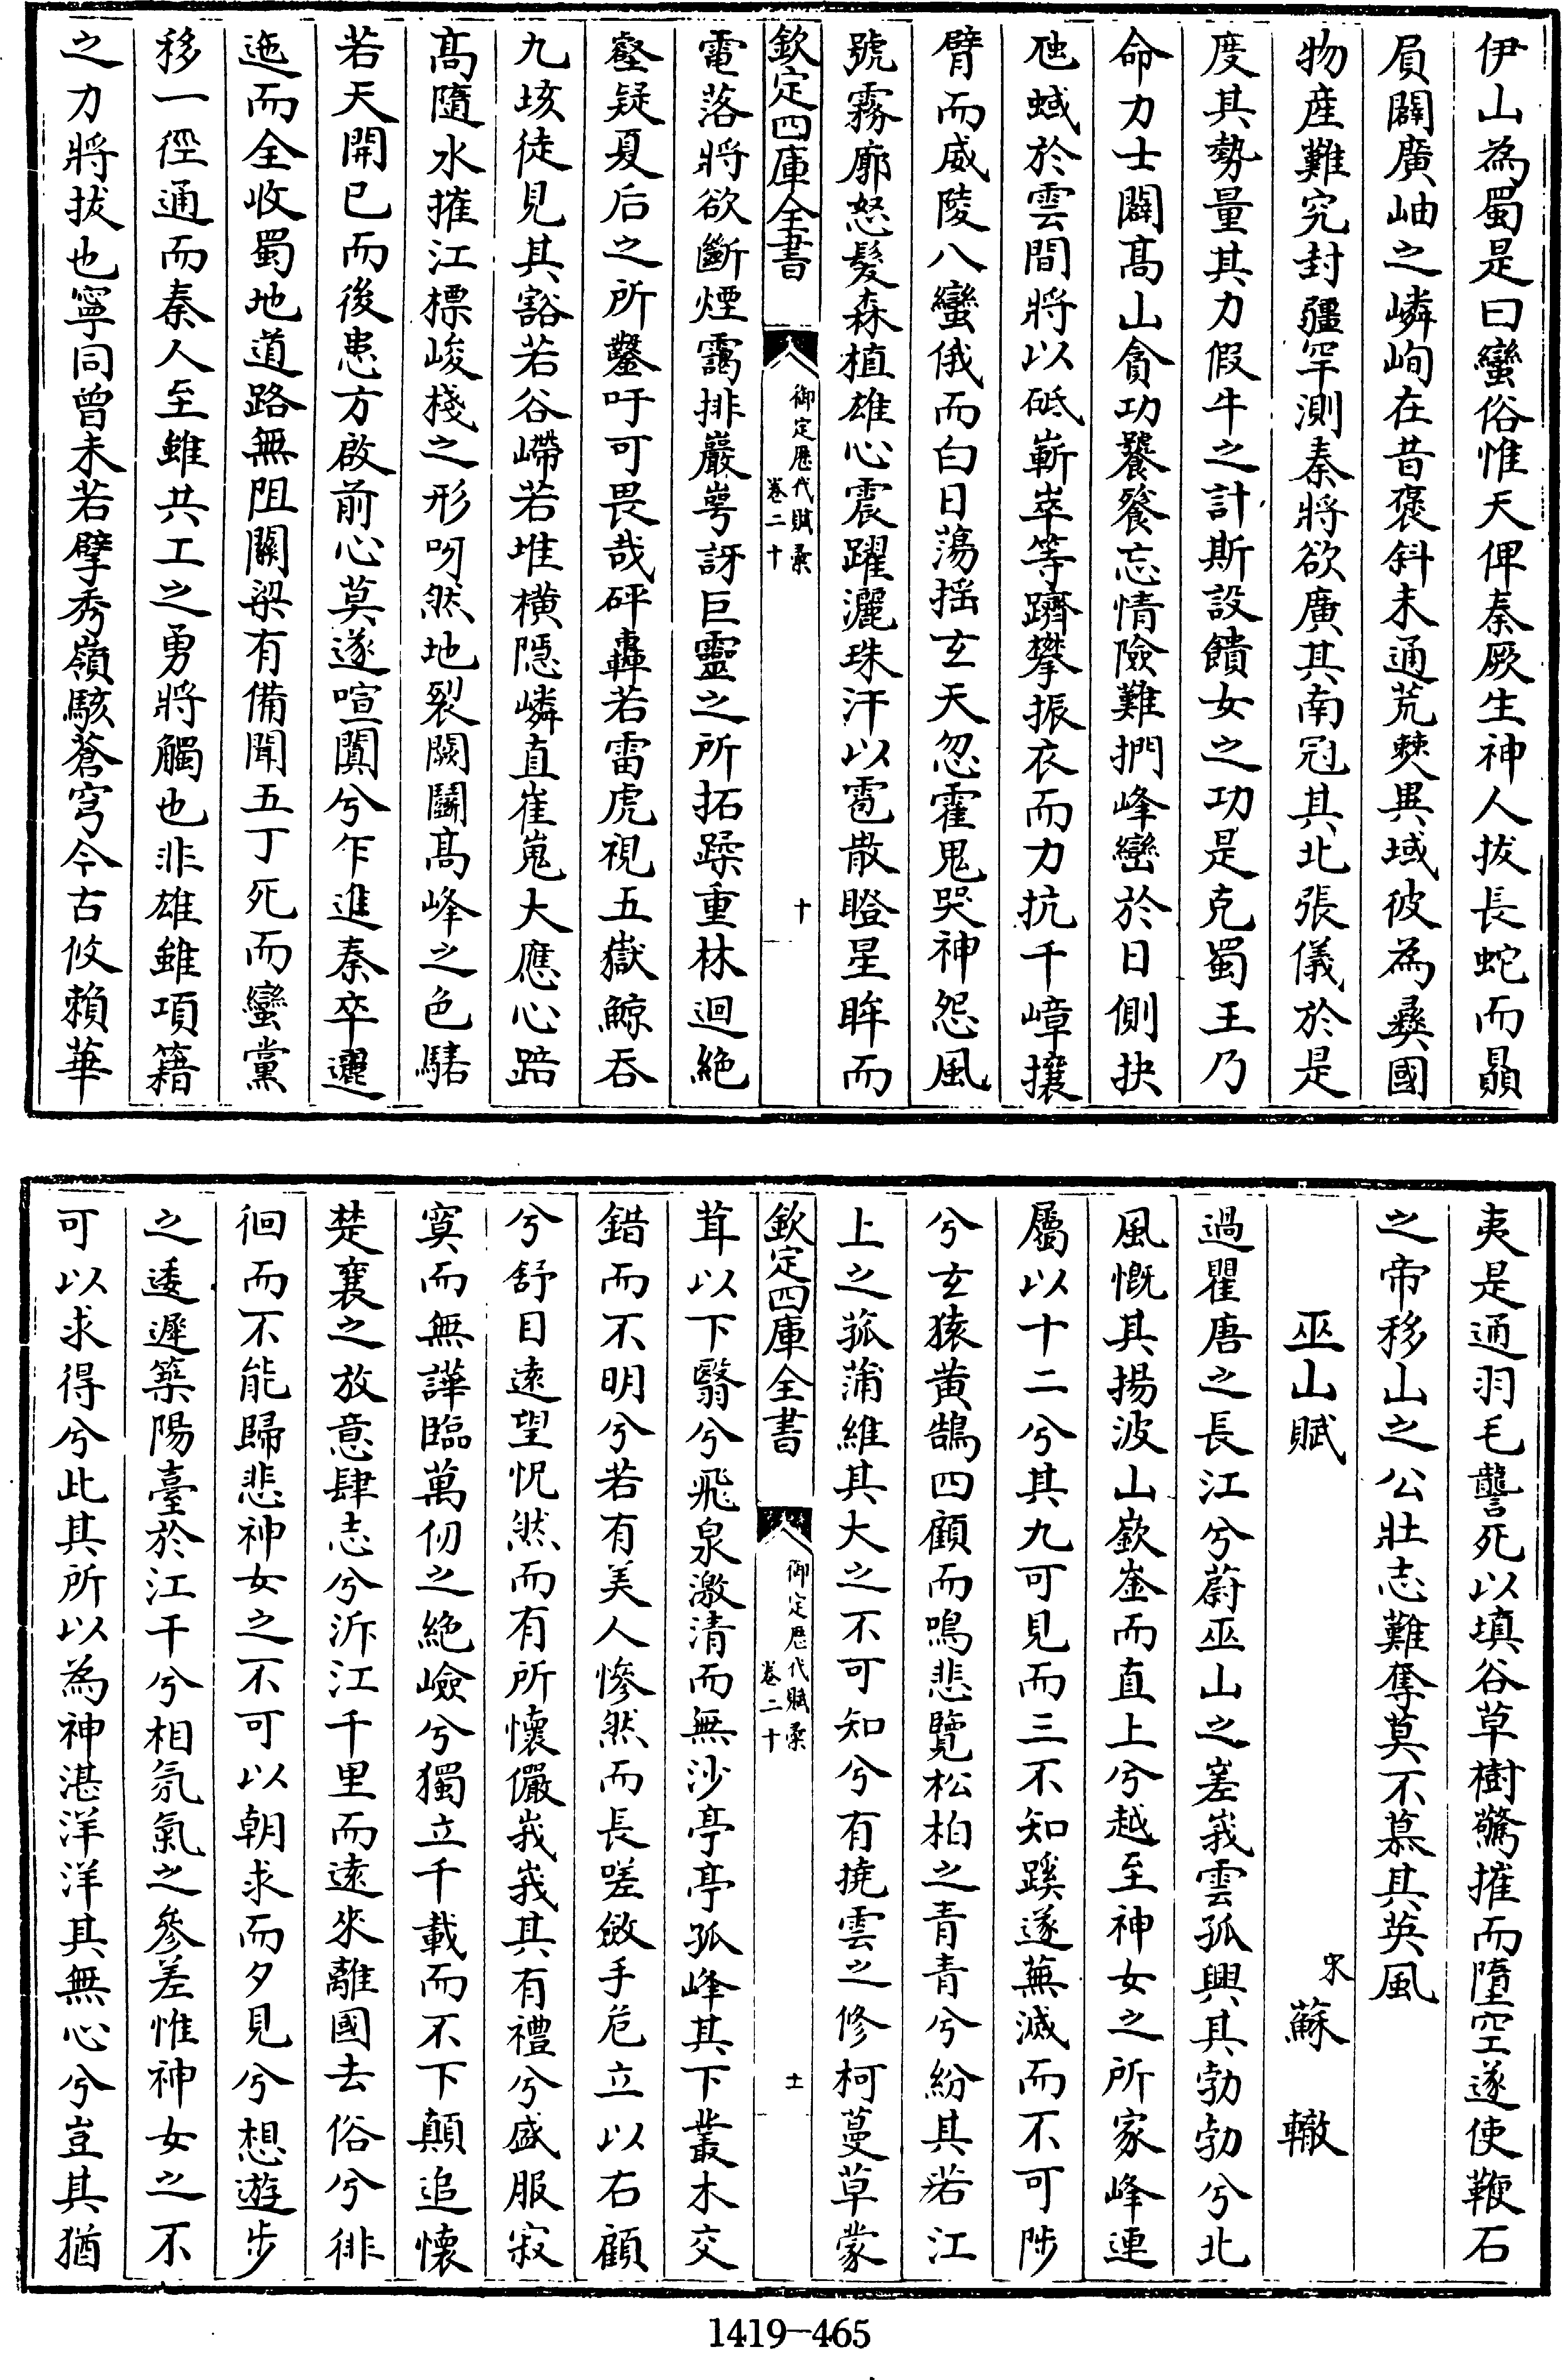 伊山為蜀是曰蠻俗惟天俾秦厥生神人拔長蛇而贔
屓闢廣岫之嶙峋在昔褒斜未通荒僰異域彼為彞國
物産難究封疆罕測秦將欲廣其南冠其北張儀於是
度其勢量其力假牛之計斯設饋女之功是克蜀王乃
命力士闢髙山貪功饕餮忘情險難捫峰巒於日側抉
虺蜮於雲間將以砥嶄崒等躋攀振衣而力抗千嶂攘
臂而威陵八蠻俄而白日蕩揺玄天忽霍鬼哭神怨風
號霧廓怒髮森植雄心震躍灑珠汗以雹散瞪星眸而
欽定四庫全書
御定歷代賦彙
卷二十
十
電落將欲斷煙靄排巖崿訝巨靈之所拓躁重林迴絶
壑疑夏后之所鑿吁可畏哉砰轟若雷虎視五嶽鯨吞
九垓徒見其豁若谷嶀若堆横隱嶙直崔嵬大應心踣
髙隨水摧江標峻棧之形呀然地裂闕鬭髙峰之色騞
若天開已而後患方啟前心莫遂喧闐兮乍進秦卒邐
迤而全收蜀地道路無阻關梁有備聞五丁死而蠻黨
移一徑通而秦人至雖共工之勇將觸也非雄雖項籍
之力將拔也寧同曾未若擘秀嶺駭蒼穹今古攸頼華
夷是通羽毛讋死以填谷草樹驚摧而墮空遂使鞭石
之帝移山之公壯志難奪莫不慕其英風
巫山賦
宋蘇轍
過瞿唐之長江兮蔚巫山之嵳峩雲孤興其勃勃兮北
風慨其揚波山嶔崟而直上兮越至神女之所家峰連
屬以十二兮其九可見而三不知蹊遂蕪滅而不可陟
兮玄猿黄鵠四顧而鳴悲覽松柏之青青兮紛其若江
上之菰蒲維其大之不可知兮有撓雲之修柯蔓草蒙
欽定四庫全書
御定歷代賦彙
卷二十
十一
茸以下翳兮飛泉激清而無沙亭亭孤峰其下叢木交
錯而不明兮若有美人慘然而長嗟斂手危立以右顧
兮舒目逺望怳然而有所懷儼峩峩其有禮兮盛服寂
寞而無譁臨萬仞之絶嶮兮獨立千載而不下顛追懷
楚襄之放意肆志兮泝江千里而逺來離國去俗兮徘
徊而不能歸悲神女之不可以朝求而夕見兮想遊步
之逶遲築陽臺於江干兮相氛氣之參差惟神女之不
可以求得兮此其所以為神湛洋洋其無心兮豈其猶
1419-465